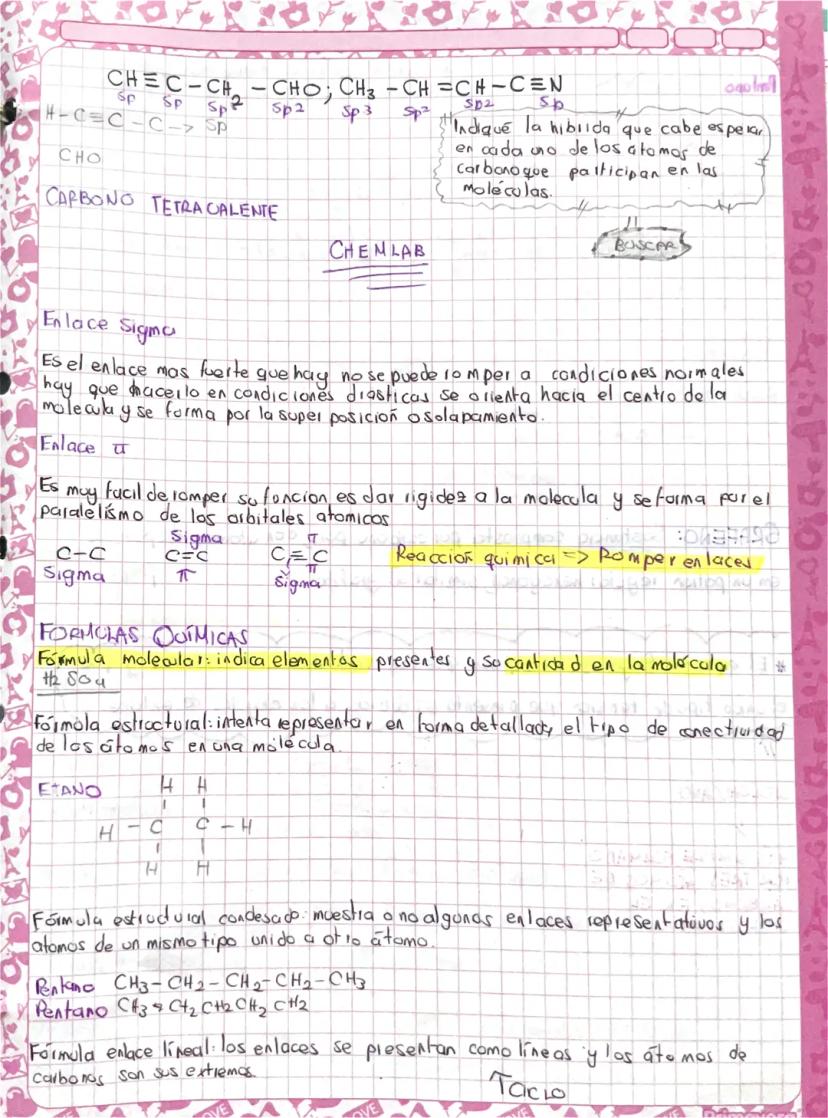 CH≡C-CH2-CHO; CH3-CH=CH-C≡N
Sp Sp Sp2 Sp2 Sp3 Sp2 Sp2 Sp
H-C≡C-C-> Sp
CHO
Indique la hibrida que cabe esperar
en cada uno de los átomos de
carbono que participan en las
moléculas.
BUSCAR
CARBONO TETRAVALENTE
CHEMLAB
Enlace Sigma
Es el enlace mas fuerte que hay no se puede romper a condiciones normales
hay que hacerlo en condiciones drasticas se orienta hacia el centro de la
molecula y se forma por la super posición o solapamiento.
Enlace π
Es muy facil de romper su funcion es dar rigidez a la molecula y se forma por el
paralelismo de los orbitales atomicos
Sigma π
C-C C=C C≡C Reacción quimica => Romper enlaces
Sigma π π
Sigma
FORMULAS QUÍMICAS
Fórmula molecular: indica elementos presentes y su cantidad en la molécula
H2SO4
Fórmula estructural: intenta representar en forma detallada, el tipo de conectividad
de los átomos en una molécula.
ETANO
H H
H - C C - H
H H
Fórmula estructural condesado: muestra o no algunos enlaces representativos y los
atomos de un mismo tipo unido a otro átomo.
Pentano CH3-CH2-CH2-CH2-CH3
Pentano CH3 CH2 CH2 CH2 CH2
Fórmula enlace líneal: los enlaces se presentan como líneas y los átomos de
carbonos son sus extremos.